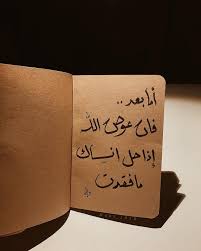 أما بعد ..
فإن عوض الله
إذا حل انساك
ما فقدت